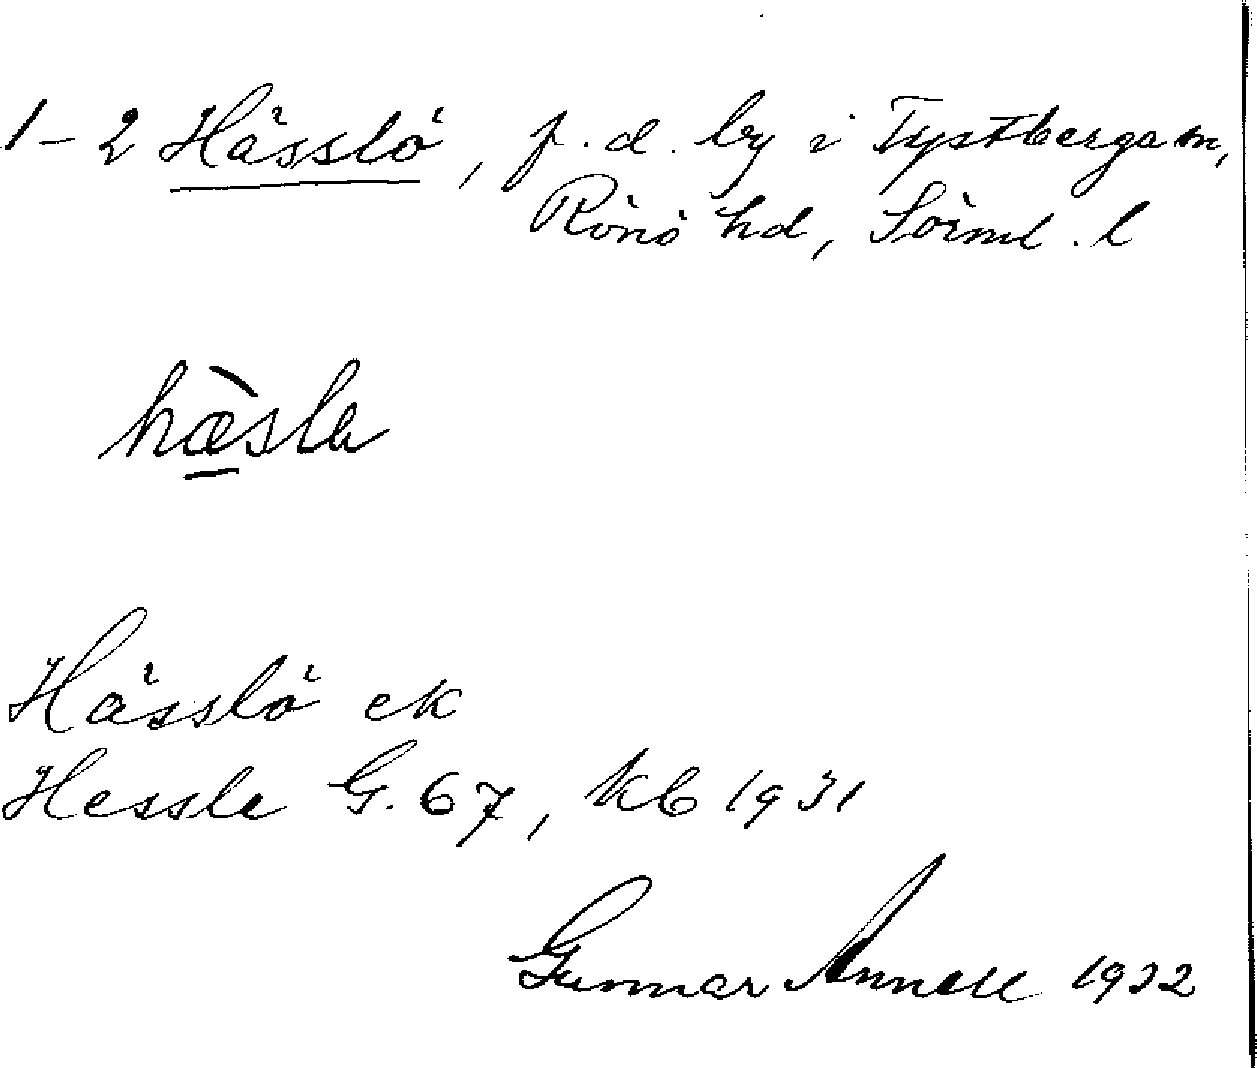 1-2 Hässlö, f.d. by i Tystberga sn,
Rönö hd, Sörml. l
hæ̀sla
Hässlö ek
Hessle G. 67, kb 1931
Gunnar Annell 1932